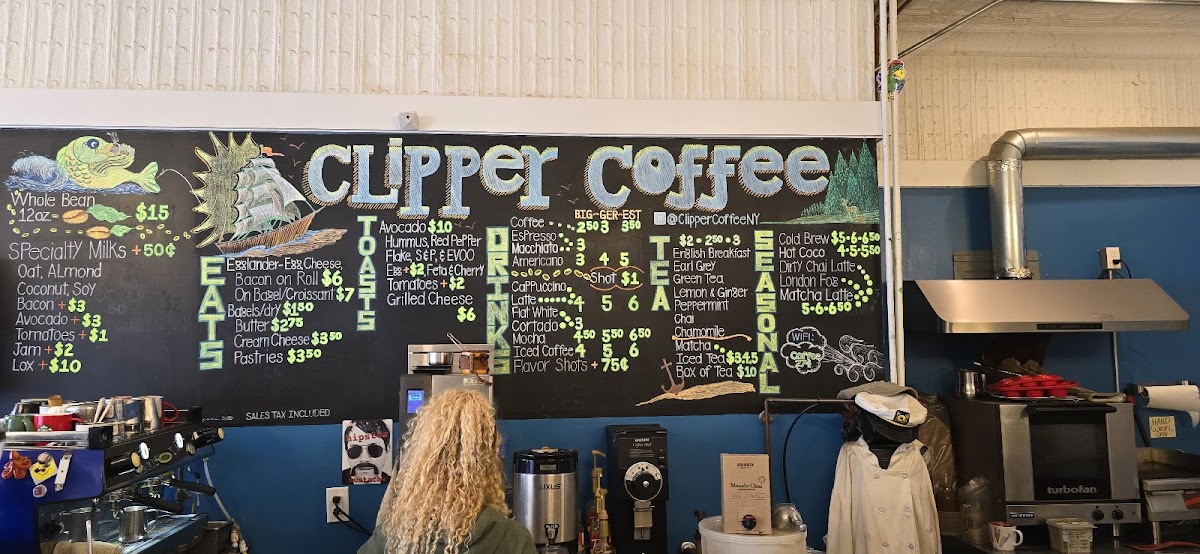 CLIPPER COFFEE
Whole Bean
12oz. $15
Specialty Milks +50¢
Oat, Almond
Coconut, Soy
Bacon + $3
Avocado + $3
Tomatoes + $1
Jam + $2
Lox + $10
EATS
Egglander - Egg, Cheese
Bacon on Roll $6
On Bagel/Croissant $7
Bagels/dry $1.50
Butter $2.75
Cream Cheese $3.50
Pastries $3.50
SALES TAX INCLUDED
TOASTS
Avocado $10
Hummus, Red Pepper
Flake, S&P, & EVOO
Egg +$2, Feta & Cherry
Tomatoes +$2
Grilled Cheese
$6
DRINKS
BIG-GER-EST
Coffee 2.50 3 3.50
Espresso
Macchiato 3
Americano 3 4 5
Shot $1
Cappuccino
Latte 4 5 6
Flat White
Cortado $3
Mocha 4.50 5.50 6.50
Iced Coffee 4 5 6
Flavor Shots + 75¢
@ClipperCoffeeNY
TEA
$2 • 2.50 • 3
English Breakfast
Earl Grey
Green Tea
Lemon & Ginger
Peppermint
Chai
Chamomile
Matcha
Iced Tea $3.4.5
Box of Tea $10
SEASONAL
Cold Brew $5-6-6.50
Hot Coco 4-5-5.50
Dirty Chai Latte
London Fog
Matcha Latte
5-6-6.50
WiFi:
hipster
mustache
LUXUS
Masala Chai
turbofan
HAND
WASH
ONLY